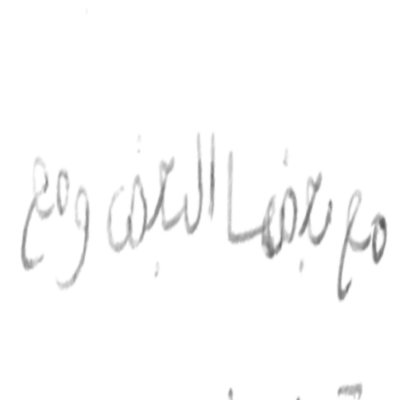 مع بعضها البعض ومع